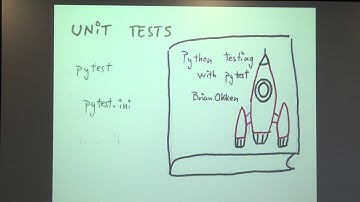 UNIT TESTS
pytest
pytest.ini
Python testing
with pytest
Brian Okken